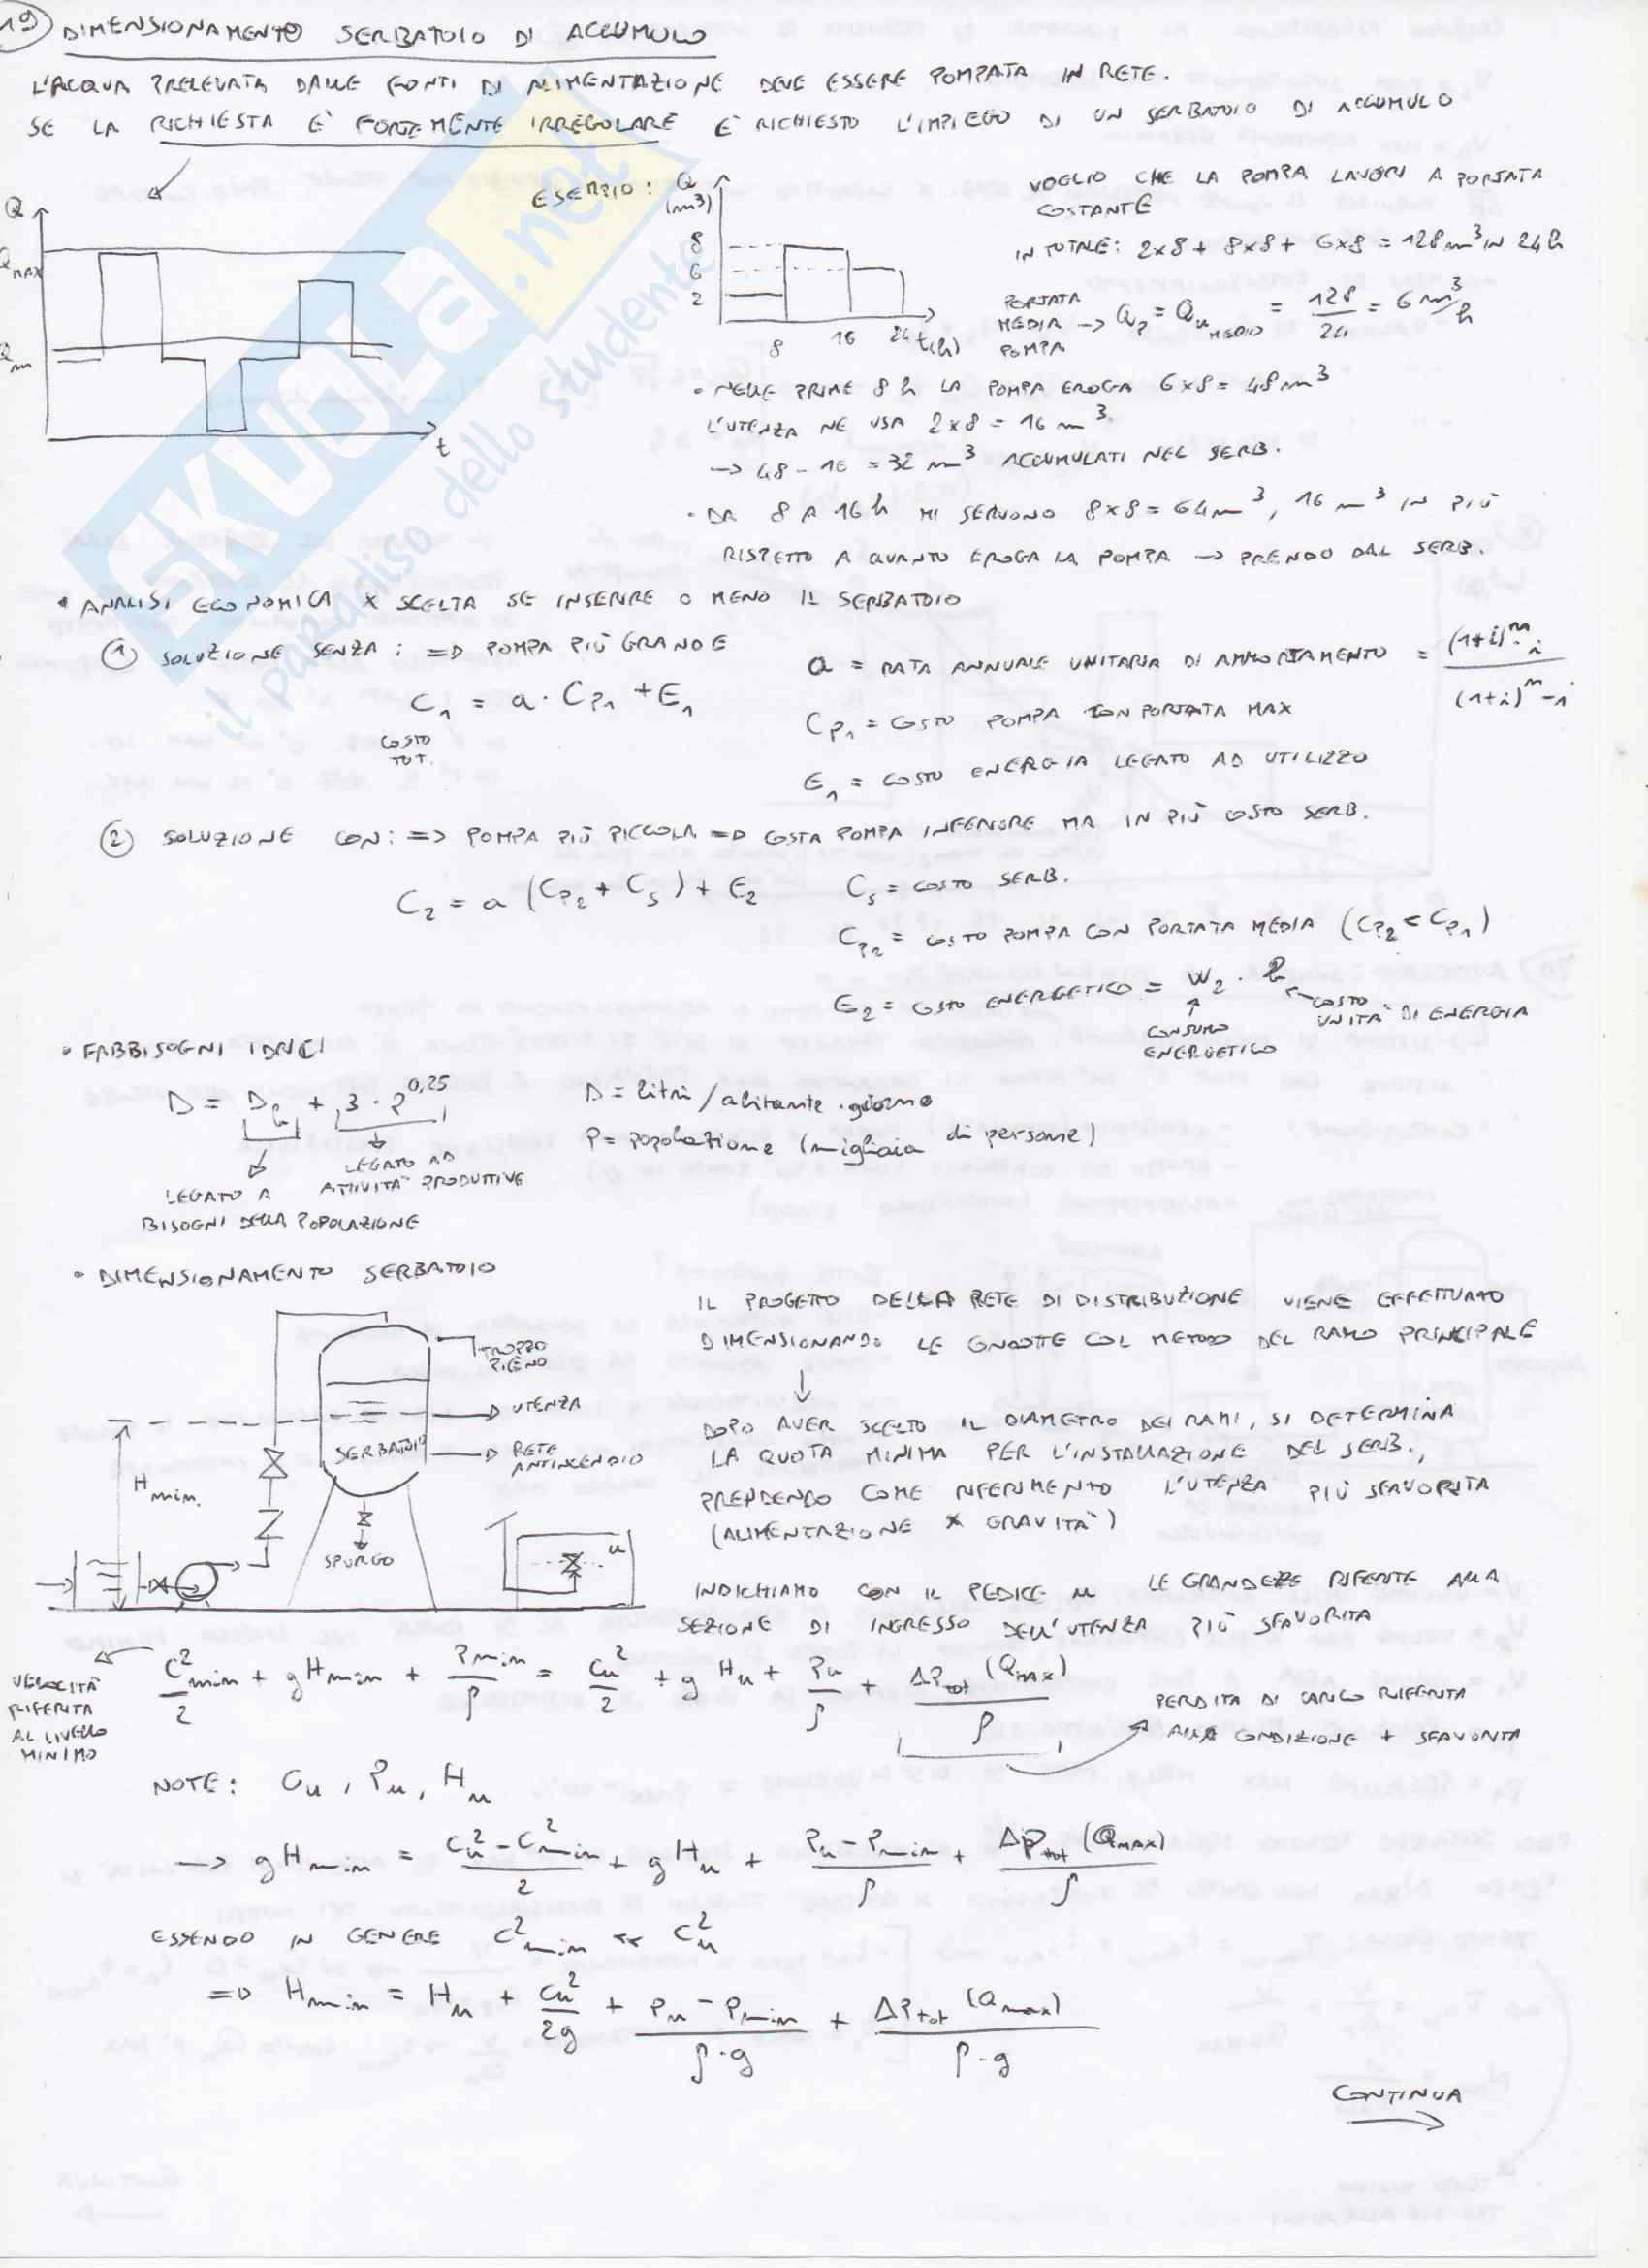 19) DIMENSIONAMENTO SERBATOIO DI ACCUMULO
L'ACQUA PRELEVATA DALLE FONTI DI ALIMENTAZIONE DEVE ESSERE POMPATA IN RETE.
SE LA RICHIESTA E' FORTEMENTE IRREGOLARE E' RICHIESTO L'IMPIEGO DI UN SERBATOIO DI ACCUMULO
Q
Q_MAX
Q_m
t
ESEMPIO: Q (m³)
8
6
2
8 16 24 t(h)
VOGLIO CHE LA POMPA LAVORI A PORTATA
COSTANTE
IN TOTALE: 2x8 + 8x8 + 6x8 = 128 m³ IN 24h
PORTATA MEDIA POMPA → Q_P = Q_u MEDIO = 128/24 = 6 m³/h
• NELLE PRIME 8h LA POMPA EROGA 6x8 = 48 m³
L'UTENZA NE USA 2x8 = 16 m³.
→ 48 - 16 = 32 m³ ACCUMULATI NEL SERB.
• DA 8 A 16h MI SERVONO 8x8 = 64 m³, 16 m³ IN PIÙ
RISPETTO A QUANTO EROGA LA POMPA → PRENDO DAL SERB.
• ANALISI ECONOMICA X SCELTA SE INSERIRE O MENO IL SERBATOIO
① SOLUZIONE SENZA: => POMPA PIÙ GRANDE
C₁ = a · C_P₁ + E₁
COSTO TOT.
a = RATA ANNUALE UNITARIA DI AMMORTAMENTO = (1+i)^n · i / (1+i)^n - 1
C_P₁ = COSTO POMPA CON PORTATA MAX
E₁ = COSTO ENERGIA LEGATO AD UTILIZZO
② SOLUZIONE CON: => POMPA PIÙ PICCOLA => COSTA POMPA INFERIORE MA IN PIÙ COSTO SERB.
C₂ = a (C_P₂ + C_s) + E₂
C_s = COSTO SERB.
C_P₂ = COSTO POMPA CON PORTATA MEDIA (C_P₂ < C_P₁)
E₂ = COSTO ENERGETICO = W₂ · h
CONSUMO ENERGETICO
COSTO UNITA' DI ENERGIA
• FABBISOGNI IDRICI
D = D_h + 3 · P^0,25
LEGATO A BISOGNI DELLA POPOLAZIONE
LEGATO AD ATTIVITA' PRODUTTIVE
D = litri / abitante · giorno
P = popolazione (migliaia di persone)
• DIMENSIONAMENTO SERBATOIO
TROPPO PIENO
UTENZA
SERBATOIO
RETE ANTINCENDIO
H min.
SPURGO
u
IL PROGETTO DELLA RETE DI DISTRIBUZIONE VIENE EFFETTUATO
DIMENSIONANDO LE CONDOTTE COL METODO DEL RAMO PRINCIPALE
↓
DOPO AVER SCELTO IL DIAMETRO DEI RAMI, SI DETERMINA
LA QUOTA MINIMA PER L'INSTALLAZIONE DEL SERB.,
PRENDENDO COME RIFERIMENTO L'UTENZA PIÙ SFAVORITA
(ALIMENTAZIONE X GRAVITA')
INDICHIAMO CON IL PEDICE u LE GRANDEZZE RIFERITE ALLA
SEZIONE DI INGRESSO DELL'UTENZA PIÙ SFAVORITA
VELOCITÀ RIFERITA AL LIVELLO MINIMO
C²min/2 + gHmin + Pmin/ρ = Cu²/2 + g Hu + Pu/ρ + ΔP_tot (Q_MAX)/ρ
PERDITA DI CARICO RIFERITA
ALLA CONDIZIONE + SFAVORITA
NOTE: Cu, Pu, Hu
→ gHmin = (Cu² - C²min)/2 + gHu + (Pu - Pmin)/ρ + ΔP_tot (Q_MAX)/ρ
ESSENDO IN GENERE C²min << Cu²
=> Hmin = Hu + Cu²/2g + (Pu - Pmin)/(ρ·g) + ΔP_tot (Q_max)/(ρ·g)
CONTINUA
→
SKUOLA.net
il paradiso dello studente